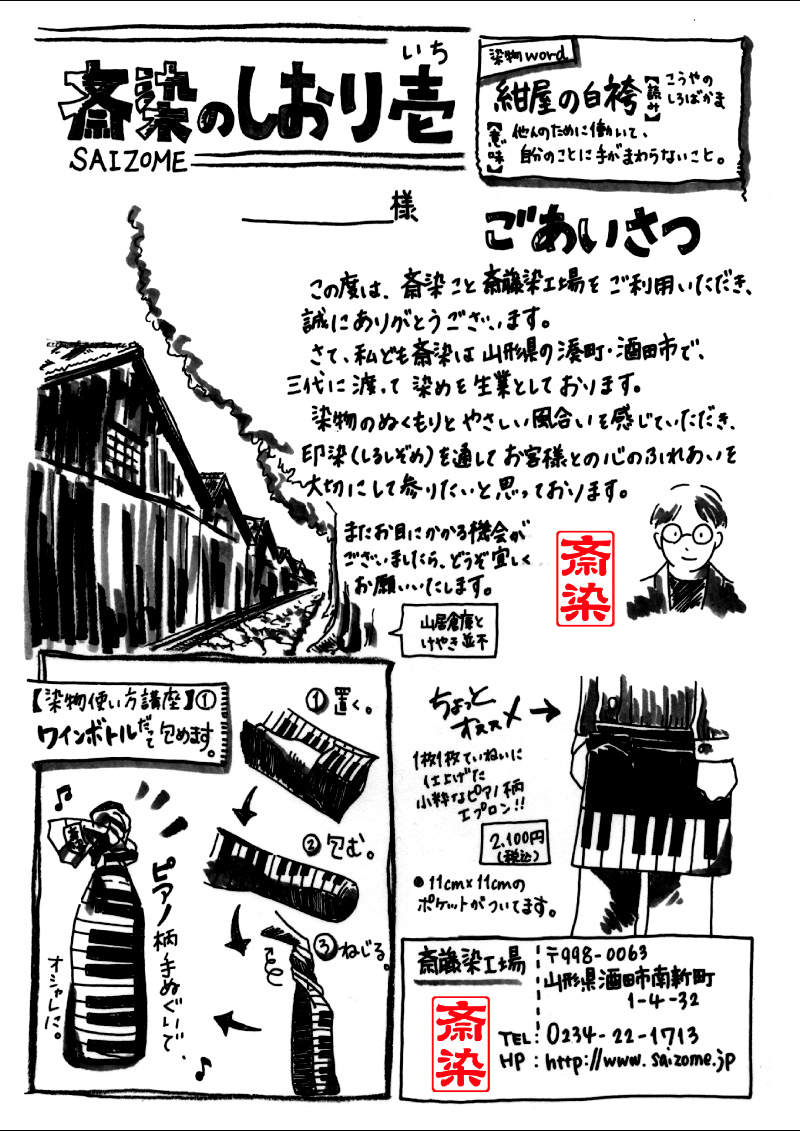 斎染のしおり壱
いち
SAIZOME
染物word
紺屋の白袴
【読み】こうやの
しろばかま
【意味】他人のために働いて、
自分のことに手がまわらないこと。
様
ごあいさつ
この度は、斎染こと斎藤染工場をご利用いただき、
誠にありがとうございます。
さて、私ども斎染は山形県の湊町・酒田市で、
三代に渡って染めを生業としております。
染物のぬくもりとやさしい風合いを感じていただき、
印染(しるしぞめ)を通してお客様との心のふれあいを
大切にして参りたいと思っております。
またお目にかかる機会が
ございましたら、どうぞ宜しく
お願いいたします。
斎染
山居倉庫と
けやき並木
【染物使い方講座】①
ワインボトルだって包めます。
①置く。
②包む。
③ねじる。
ピアノ柄手ぬぐいで、
オシャレに。
ちょっと
オススメ
1枚1枚ていねいに
仕上げた
小粋なピアノ柄
エプロン!!
2,100円
(税込)
●11cm×11cmの
ポケットがついてます。
斎藤染工場
斎染
〒998-0063
山形県酒田市南新町
1-4-32
TEL:0234-22-1713
HP:http://www.saizome.jp